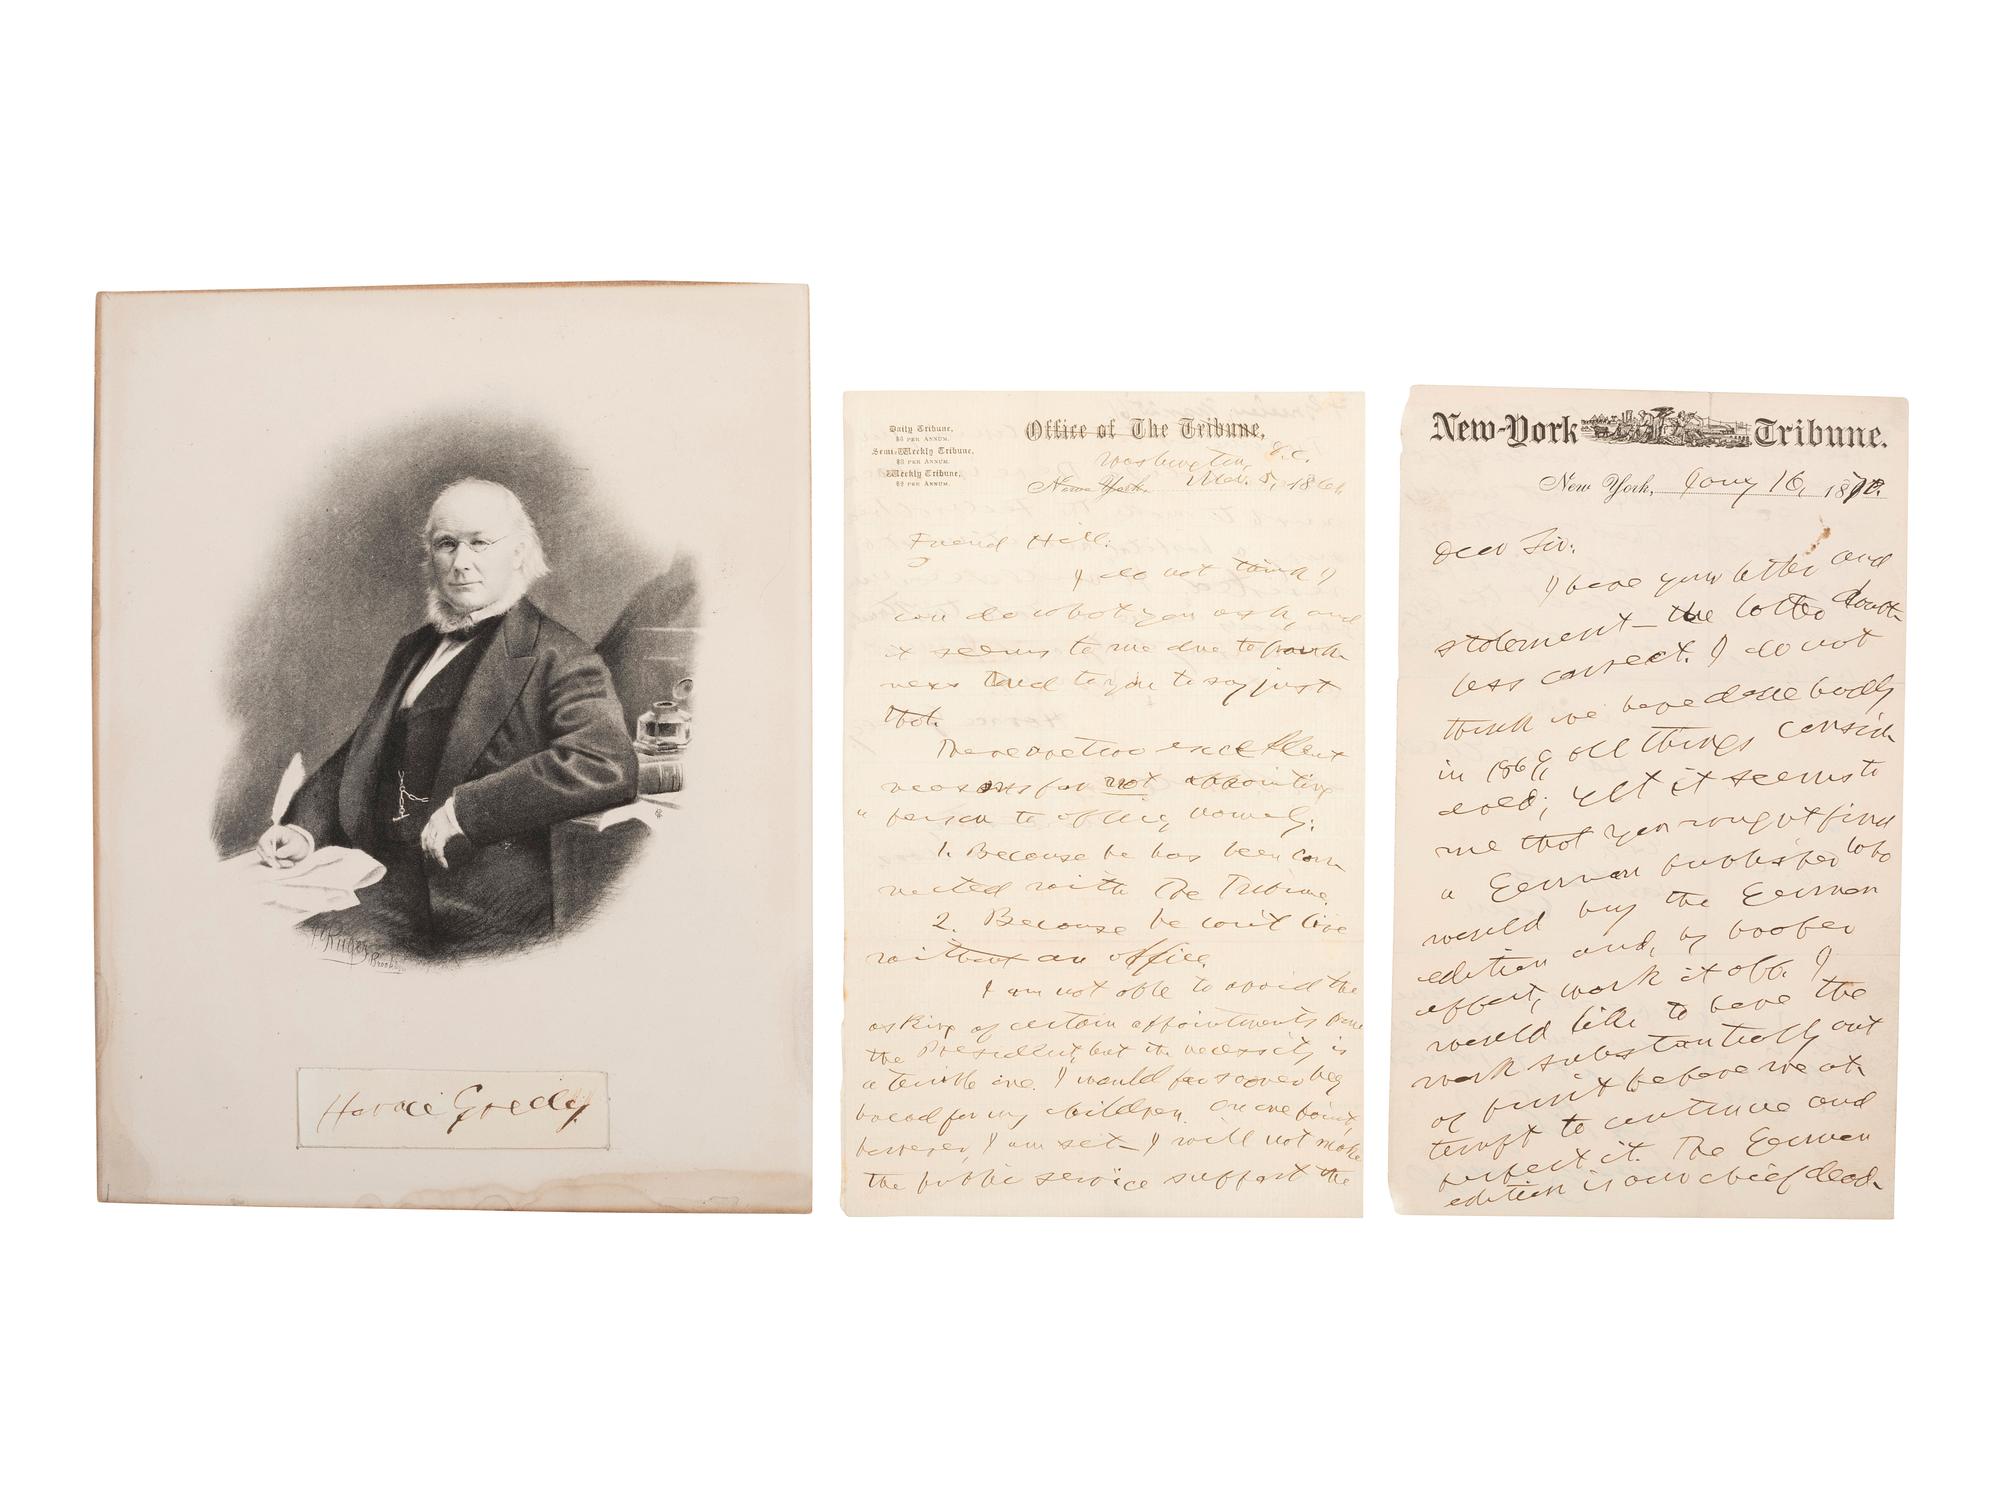 Horace Greeley.
Daily Tribune,
$8 PER ANNUM.
Semi-Weekly Tribune,
$3 PER ANNUM.
Weekly Tribune,
$2 PER ANNUM.
Office of The Tribune,
Washington, D.C.
New York, Mar. 5, 1861
Friend Hill:
I do not think I
can do what you ask, and
it seems to me due to frank
ness and to you to say just
that.
There are two excellent
reasons for not appointing
a person to office, namely:
1. Because he has been con
nected with The Tribune.
2. Because he can't live
without an office.
I am not able to avoid the
asking of certain appointments from
the President, but the necessity is
a terrible one. I would far sooner beg
bread for my children. On one point,
however, I am set— I will not make
the public service support the
New-York Tribune.
New York, Jany 16, 1870.
Dear Sir:
I have your letter and
statement— the latter doubt-
less correct. I do not
think we have done badly
in 1869, all things consid-
ered; yet it seems to
me that you might find
a German publisher who
would buy the German
edition and, by proper
effort, work it off. I
would like to have the
work substantially out
of print before we at-
tempt to continue and
perfect it. The German
edition is our chief dead-